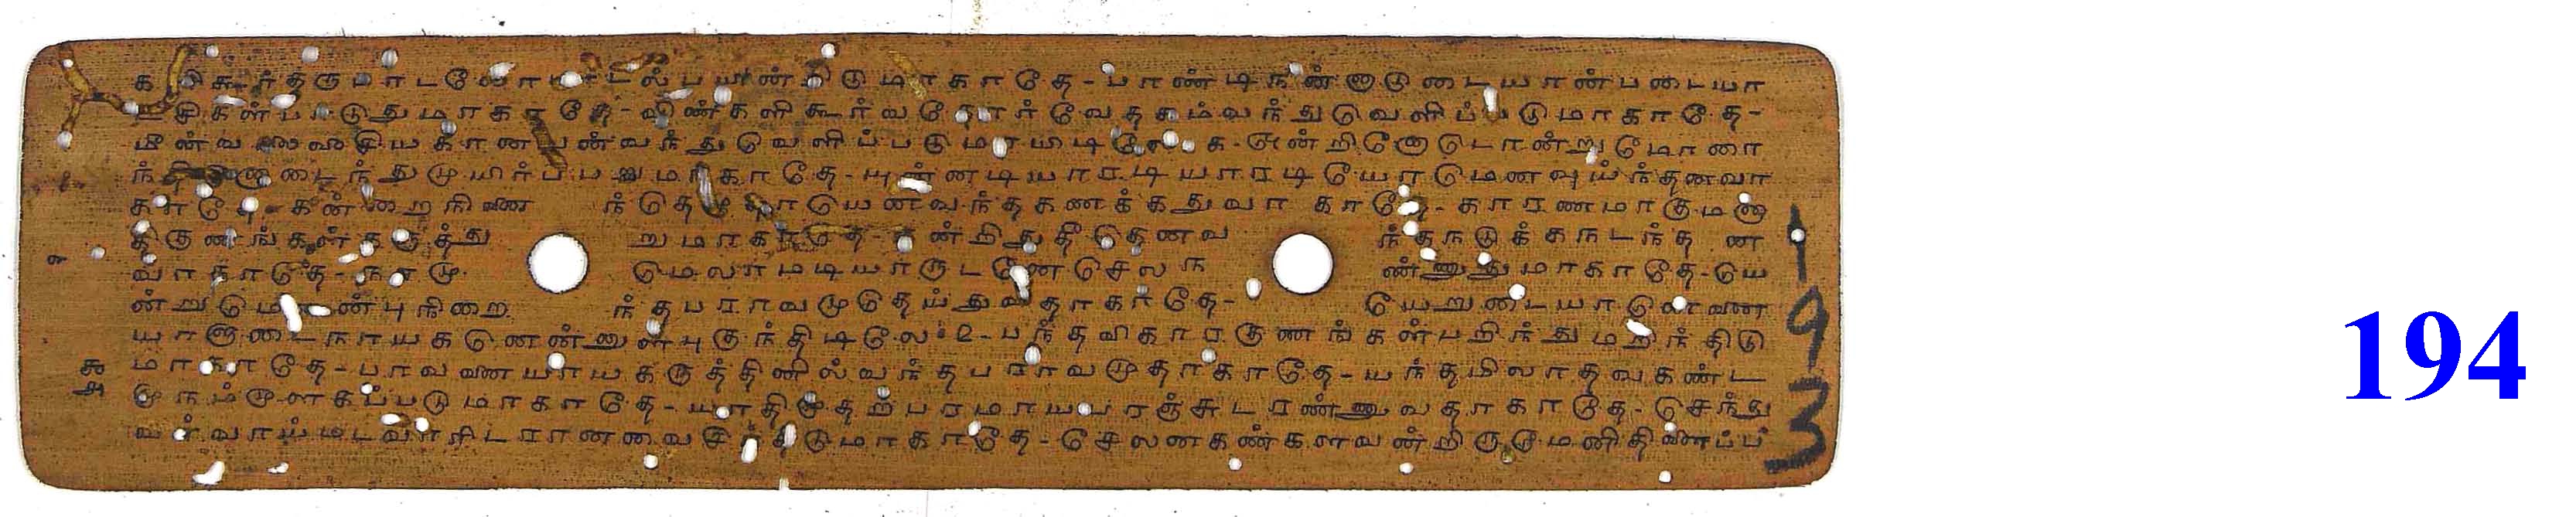 களிகூர்தருமாடலோடாடல்பயின்றிடுமாகாதே-பாண்டிநன்னாடுடையான்படையா
ட்சிகள்பாடுதுமாகாதே-விண்களிகூர்வதோர்வேதகம்வந்துவெளிப்படுமாகாதே-
மீன்வலைவீசியகானவன்வந்துவெளிப்படுமாயிடிலே க-ஒன்றினோடொன்றுமோரை
ந்தினுடைந்துமுயிர்ப்பறுமாகாதே-யுன்னடியாரடியாரடியோமெனவுய்ந்தனவா
காதே-கன்றைநினை ந்தெழுதாயெனவந்தகணக்கதுவா காதே-காரணமாகுமனா
திகுணங்கள்கருத்து றுமாகாதே-நன்றிதுதீதெனவ ந்தநடுக்கநடந்த ன
வாகாதே-நாமு மெலாமடியாருடனேசெலந ண்ணுதுமாகாதே-யெ
ன்றுமென்னன்புநிறை ந்தபராவமுதெய்துவதாகாதே- யேறுடையானெனை
யாளுடைநாயகனென்னுள்புகுந்திடிலே உ-பந்தவிகாரகுணங்கள்பறிந்துமறிந்திடு
மாகாதே-பாவனையாயகருத்தினில்வந்தபராவமுதாகாதே-யந்தமிலாதவகண்ட
முநம்முளகப்படுமாகாதே-யாதிமுதற்பரமாயபரஞ்சுடரண்ணுவதாகாதே-செந்து
வர்வாய்மடவாரிடரானவைசிந்திடுமாகாதே-சேலனகண்களவன்றிருமேனிதிளைப்ப
193
194